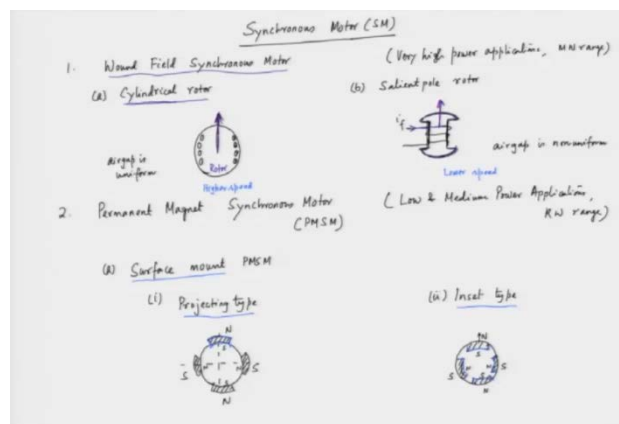 Synchronous Motor (SM)
1. Wound Field Synchronous Motor (Very high power applications, MW range)
(a) Cylindrical rotor (b) Salient pole rotor
if
airgap is uniform Rotor airgap is nonuniform
Higher speed Lower speed
2. Permanent Magnet Synchronous Motor (PMSM) (Low & Medium Power Applications, KW range)
(a) Surface mount PMSM
(i) Projecting type (ii) Inset type
N N
S S
S N N S S N N S
S S
N N